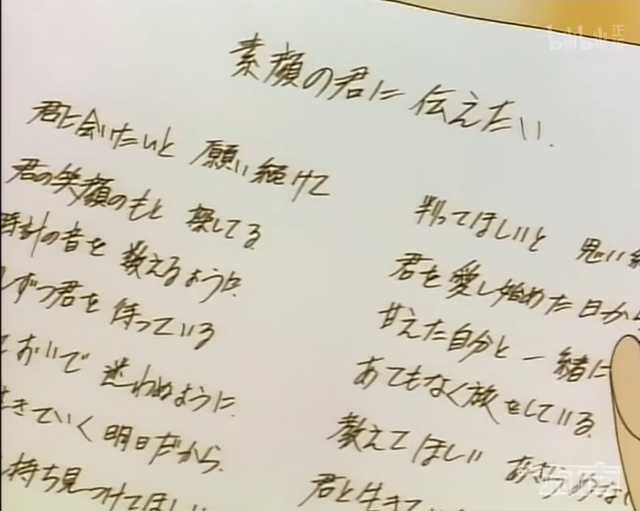 素顔の君に伝えたい.
君に会いたいと 願い続けて
君の笑顔のもと 探してる
時計の音を 数えるように
しずつ君を 待っている
おいで 迷わぬように
生きていく 明日だから
持ち見つけてほしい
判ってほしいと 思い続
君を愛し始めた日から
甘えた自分と 一緒に
あてもなく旅をしている
教えてほしい
君と生きてい
bilibili